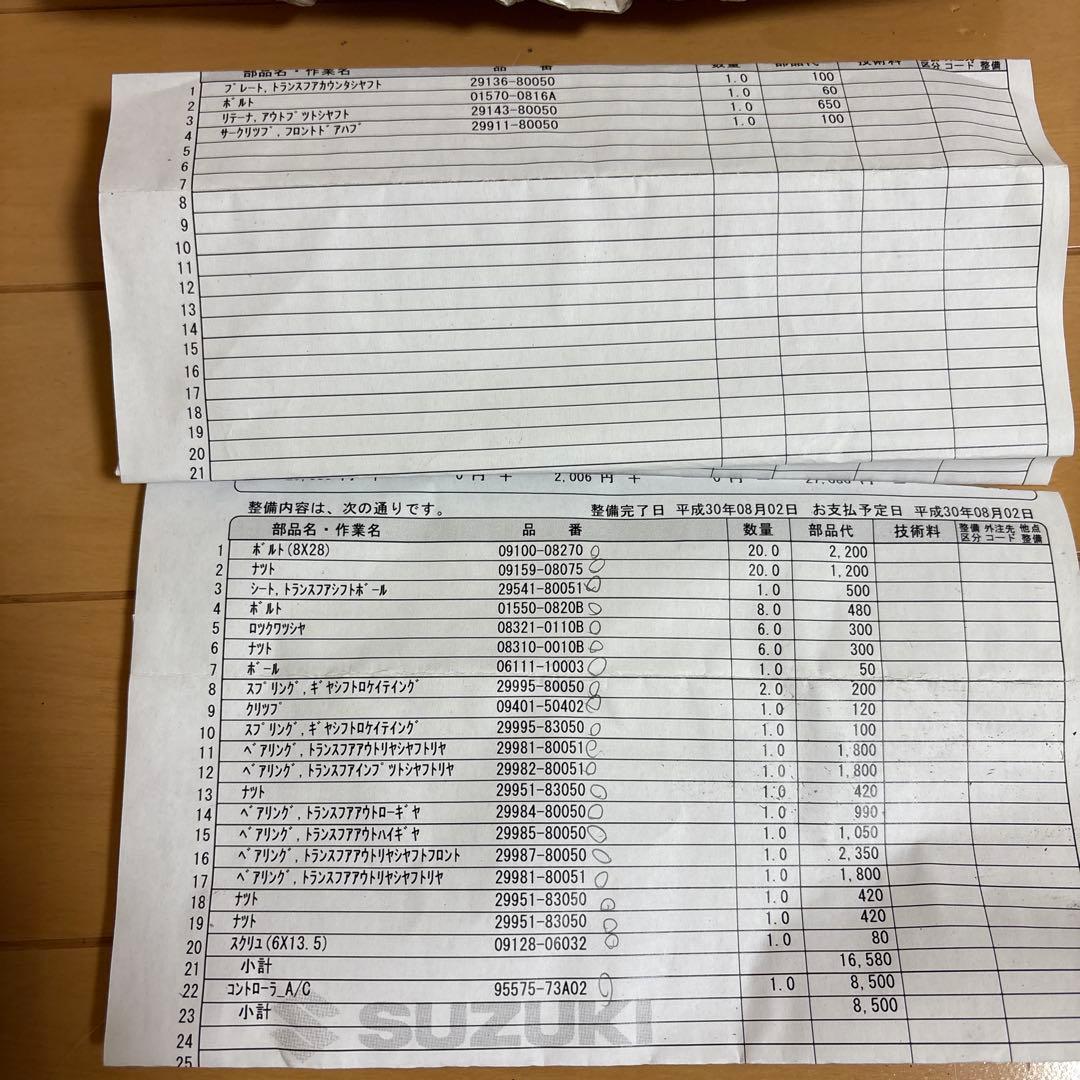 部品名・作業名 品 番 数量 部品代 技術料 区分 コード 整備
1 プレート,トランスフアカウンタシヤフト 29136-80050 1.0 100
2 ボルト 01570-0816A 1.0 60
3 リテーナ,アウトプツトシヤフト 29143-80050 1.0 650
4 サークリツプ,フロントドアハブ 29911-80050 1.0 100
5
6
7
8
9
10
11
12
13
14
15
16
17
18
19
20
21
0円 + 2,006円 + 0円
整備内容は、次の通りです。 整備完了日 平成30年08月02日 お支払予定日 平成30年08月02日
部品名・作業名 品 番 数量 部品代 技術料 整備 外注先 他点
区分 コード 整備
1 ボルト(8X28) 09100-08270 20.0 2,200
2 ナツト 09159-08075 20.0 1,200
3 シート,トランスフアシフトボール 29541-80051 1.0 500
4 ボルト 01550-0820B 8.0 480
5 ロツクワツシヤ 08321-0110B 6.0 300
6 ナツト 08310-0010B 6.0 300
7 ボール 06111-10003 1.0 50
8 スプリング,ギヤシフトロケイテイング 29995-80050 2.0 200
9 クリツプ 09401-50402 1.0 120
10 スプリング,ギヤシフトロケイテイング 29995-83050 1.0 100
11 ベアリング,トランスフアアウトリヤシヤフトリヤ 29981-80051 1.0 1,800
12 ベアリング,トランスフアインプツトシヤフトリヤ 29982-80051 1.0 1,800
13 ナツト 29951-83050 1.0 420
14 ベアリング,トランスフアアウトローギヤ 29984-80050 1.0 990
15 ベアリング,トランスフアアウトハイギヤ 29985-80050 1.0 1,050
16 ベアリング,トランスフアアウトリヤシヤフトフロント 29987-80050 1.0 2,350
17 ベアリング,トランスフアアウトリヤシヤフトリヤ 29981-80051 1.0 1,800
18 ナツト 29951-83050 1.0 420
19 ナツト 29951-83050 1.0 420
20 スクリユ(6X13.5) 09128-06032 1.0 80
21 小計 16,580
22 コントローラ_A/C 95575-73A02 1.0 8,500
23 小計 8,500
SUZUKI
24
25